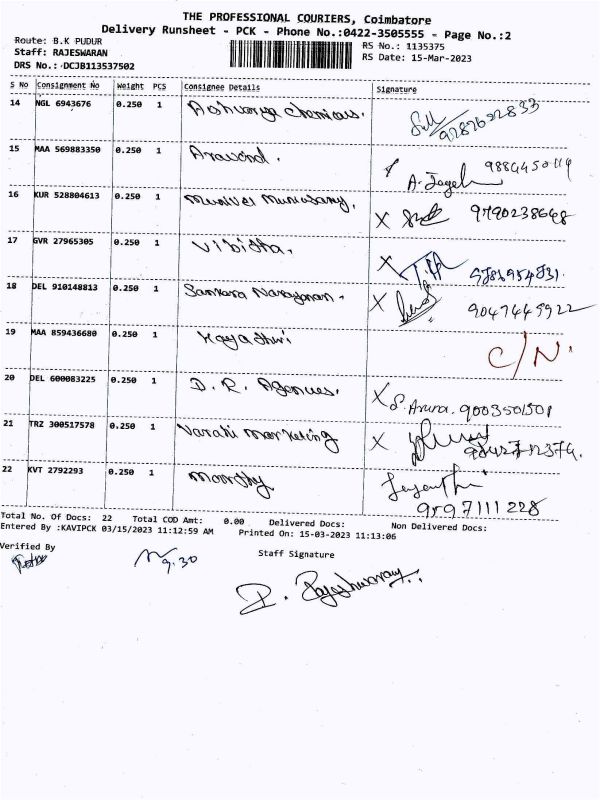 THE PROFESSIONAL COURIERS, Coimbatore
Delivery Runsheet - PCK - Phone No.:0422-3505555 - Page No.:2
Route: B.K PUDUR
RS No.: 1135375
Staff: RAJESWARAN
RS Date: 15-Mar-2023
DRS No.: DCJB113537502
S No Consignment No Weight PCS Consignee Details Signature
14 NGL 6943676 0.250 1 Aishwarya Chemicals.
15 MAA 569883350 0.250 1 Aravind.
16 KUR 528804613 0.250 1 Munisamy, X 9790238648
17 GVR 27965305 0.250 1 Vibitha, X
18 DEL 910148813 0.250 1 Sankara Narayanan. X 9047445922
19 MAA 859436680 0.250 1 C/N.
20 DEL 600083225 0.250 1 D. R. Agencies. X S. Aruna. 9003501501
21 TRZ 300517578 0.250 1 Varahi marketing X
22 KVT 2792293 0.250 1 Moorthy Jayanthi
9597111228
Total No. Of Docs: 22 Total COD Amt: 0.00 Delivered Docs: Non Delivered Docs:
Entered By :KAVIPCK 03/15/2023 11:12:59 AM Printed On: 15-03-2023 11:13:06
Verified By Staff Signature
9.30
D. Rajeshwaran